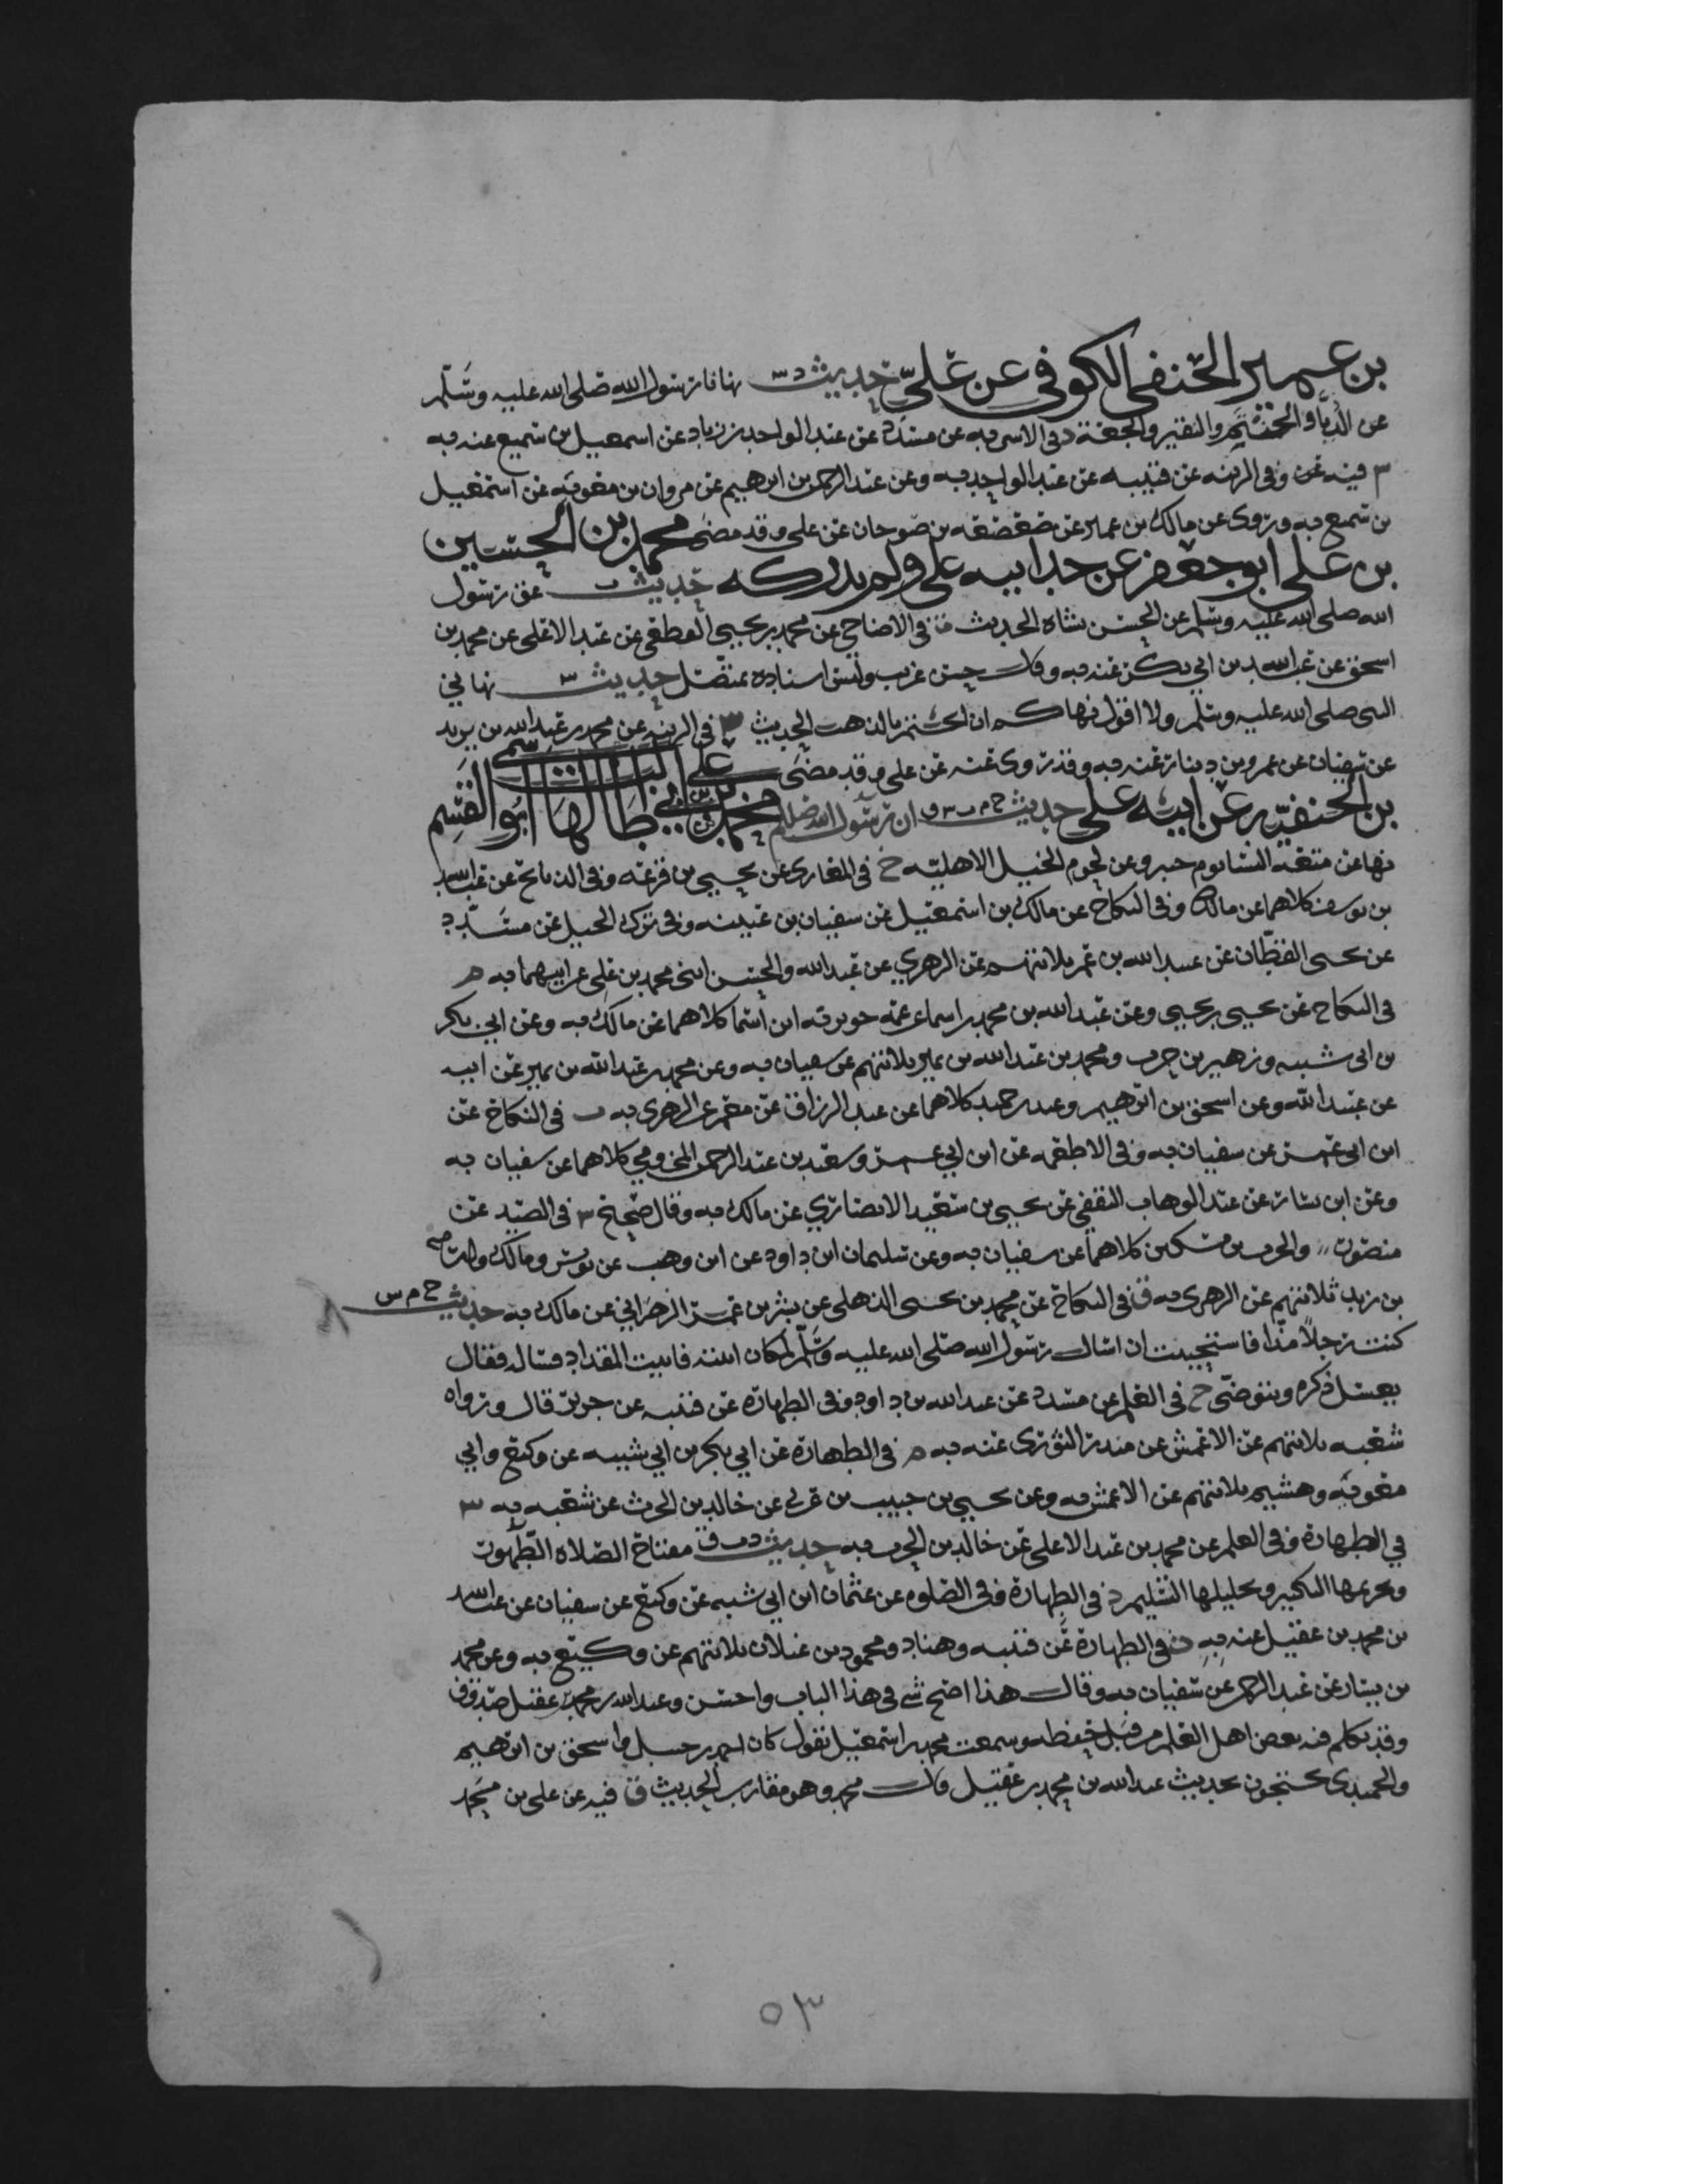 بن عمير الحنفي الكوفي عن علي حديث د س نهانا رسول الله صلى الله عليه وسلم
عن الدبا والحنتم والنقير والجعة د في الاشربه عن مسدد عن عبد الواحد بن زياد عن اسمعيل بن سميع عنه به
س فيه عن وفي الزينه عن قتيبه عن عبد الواحد به وعن عبد الرحمن بن ابرهيم عن مروان بن معويه عن اسمعيل
بن سميع به وروى عن مالك بن عمير عن صعصعه بن صوحان عن علي وقد مضى محمد بن الحسين
بن علي ابو جعفر عن جد ابيه علي ولم يدركه حديث ت عق رسول
الله صلى الله عليه وسلم عن الحسن بشاه الحديث ت في الاضاحي عن محمد بن يحيى القطعي عن عبد الاعلى عن محمد بن
اسحق عن عبد الله بن ابي بكر عنه به وقال حسن غريب وليس اسناده بمتصل حديث س نهاني
النبي صلى الله عليه وسلم ولا اقول نهاكم ان اتختم بالذهب الحديث س في الزينه عن محمد بن عبد الله بن يزيد
عن سفيان عن عمرو بن دينار عنه به وقد روى عنه عن علي وقد مضى
محمد بن علي بن ابي طالب ابو القسم
بن الحنفيه عن ابيه علي حديث خ م ت س ق ان رسول الله صلعم
نها عن متعه النسا يوم خيبر وعن لحوم الخيل الاهليه خ في المغازي عن يحيى بن قزعه وفي الذبائح عن عبد الله
بن يوسف كلاهما عن مالك وفي النكاح عن مالك بن اسمعيل عن سفيان بن عيينه وفي ترك الحيل عن مسدد
عن يحيى القطان عن عبيد الله بن عمر ثلاثتهم عن الزهري عن عبد الله والحسن ابني محمد بن علي عن ابيهما به م
في النكاح عن يحيى بن يحيى وعن عبد الله بن محمد بن اسما عن عمه جويريه ابن اسما كلاهما عن مالك به وعن ابي بكر
بن ابي شيبه وزهير بن حرب ومحمد بن عبد الله بن نمير ثلاثتهم عن سفيان به وعن محمد بن عبد الله بن نمير عن ابيه
عن عبيد الله وعن اسحق بن ابرهيم وعبد بن حميد كلاهما عن عبد الرزاق عن معمر عن الزهري به ت في النكاح عن
ابن ابي عمر عن سفيان به وفي الاطعمه عن ابن ابي عمر وسعيد بن عبد الرحمن المخزومي كلاهما عن سفيان به
وعن ابن بشار عن عبد الوهاب الثقفي عن يحيى بن سعيد الانصاري عن مالك به وقال صحيح س في الصيد عن
منصور والحرث بن مسكين كلاهما عن سفيان به وعن سليمان ابن داود عن ابن وهب عن يونس ومالك
بن زيد ثلاثتهم عن الزهري به ق في النكاح عن محمد بن يحيى الذهلي عن بشر بن عمر الزهراني عن مالك به حديث خ م س
كنت رجلا مذا فاستحييت ان اسال رسول الله صلى الله عليه وسلم لمكان ابنته فاتيت المقداد فساله فقال
يغسل ذكره ويتوضى خ في العلم عن مسدد عن عبد الله بن داود وفي الطهارة عن قتيبه عن جرير قال ورواه
شعبه ثلاثتهم عن الاعمش عن منذر الثوري عنه به م في الطهارة عن ابي بكر بن ابي شيبه عن وكيع وابي
معويه وهشيم ثلاثتهم عن الاعمش به وعن يحيى بن حبيب بن عربي عن خالد بن الحرث عن شعبه به س
في الطهارة وفي العلم عن محمد بن عبد الاعلى عن خالد بن الحرث به حديث د ت ق مفتاح الصلاه الطهور
وتحريمها التكبير وتحليلها التسليم د في الطهارة وفي الصلوه عن عثمان ابن ابي شيبه عن وكيع عن سفيان عن عبد الله
بن محمد بن عقيل عنه به ت في الطهارة عن قتيبه وهناد ومحمود بن غيلان ثلاثتهم عن وكيع به وعن محمد
بن بشار عن عبد الرحمن عن سفيان به وقال هذا اصح شي في هذا الباب واحسن وعبد الله بن محمد بن عقيل صدوق
وقد تكلم فيه بعض اهل العلم من قبل حفظه وسمعت محمد بن اسمعيل يقول كان احمد بن حنبل واسحق بن ابرهيم
والحميدي يحتجون بحديث عبد الله بن محمد بن عقيل قال محمد وهو مقارب الحديث ق فيه عن علي بن محمد
٥٣